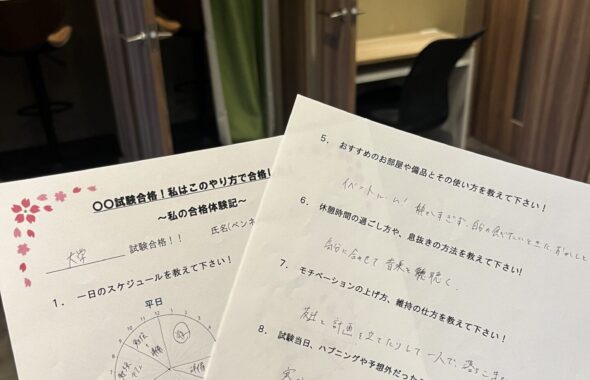 〇〇試験合格！私はこのやり方で合格し
～私の合格体験記～
氏名(ペンネ
大学 試験合格！！
1． 一日のスケジュールを教えて下さい！
平日
5． おすすめのお部屋や備品とその使い方を教えて下さい！
イベントルーム！ 静かすぎず、
6． 休憩時間の過ごし方や、息抜きの方法を教えて下さい！
気分に合わせて 音楽を聴く。
7． モチベーションの上げ方、維持の仕方を教えて下さい！
友達と計画を立てたりして一人で
8． 試験当日、ハプニングや予想外だった